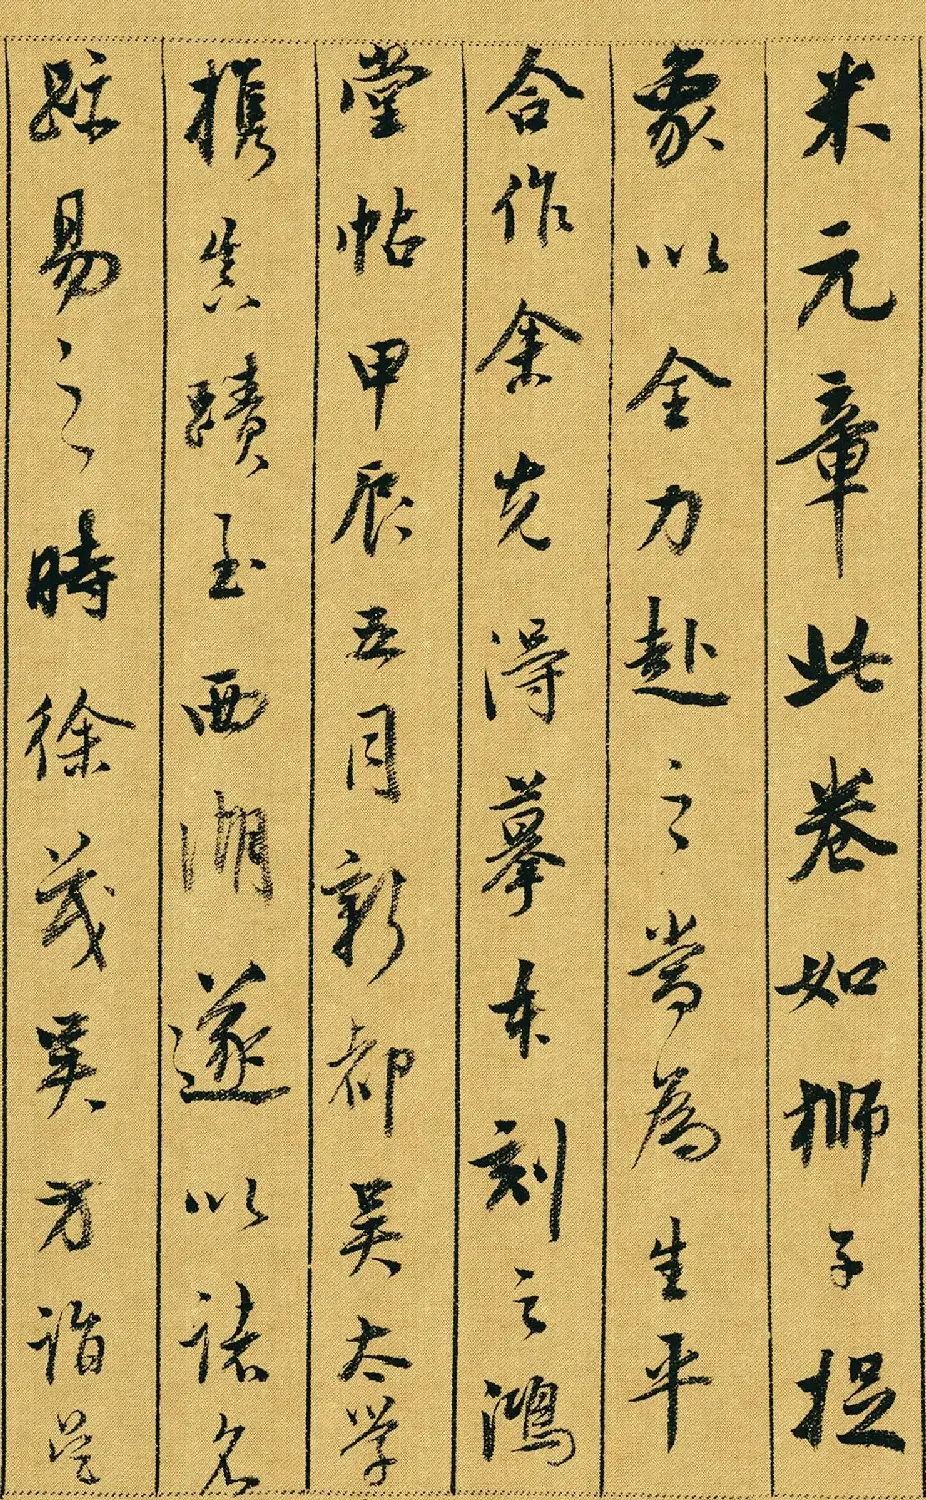 米元章此卷如獅子捉
象以全力赴之當為生平
合作余先得摹本刻之鴻
堂帖甲辰五月新都吳太學
攜真蹟至西湖遂以諸名
跡易之時徐茂吳方詣吳